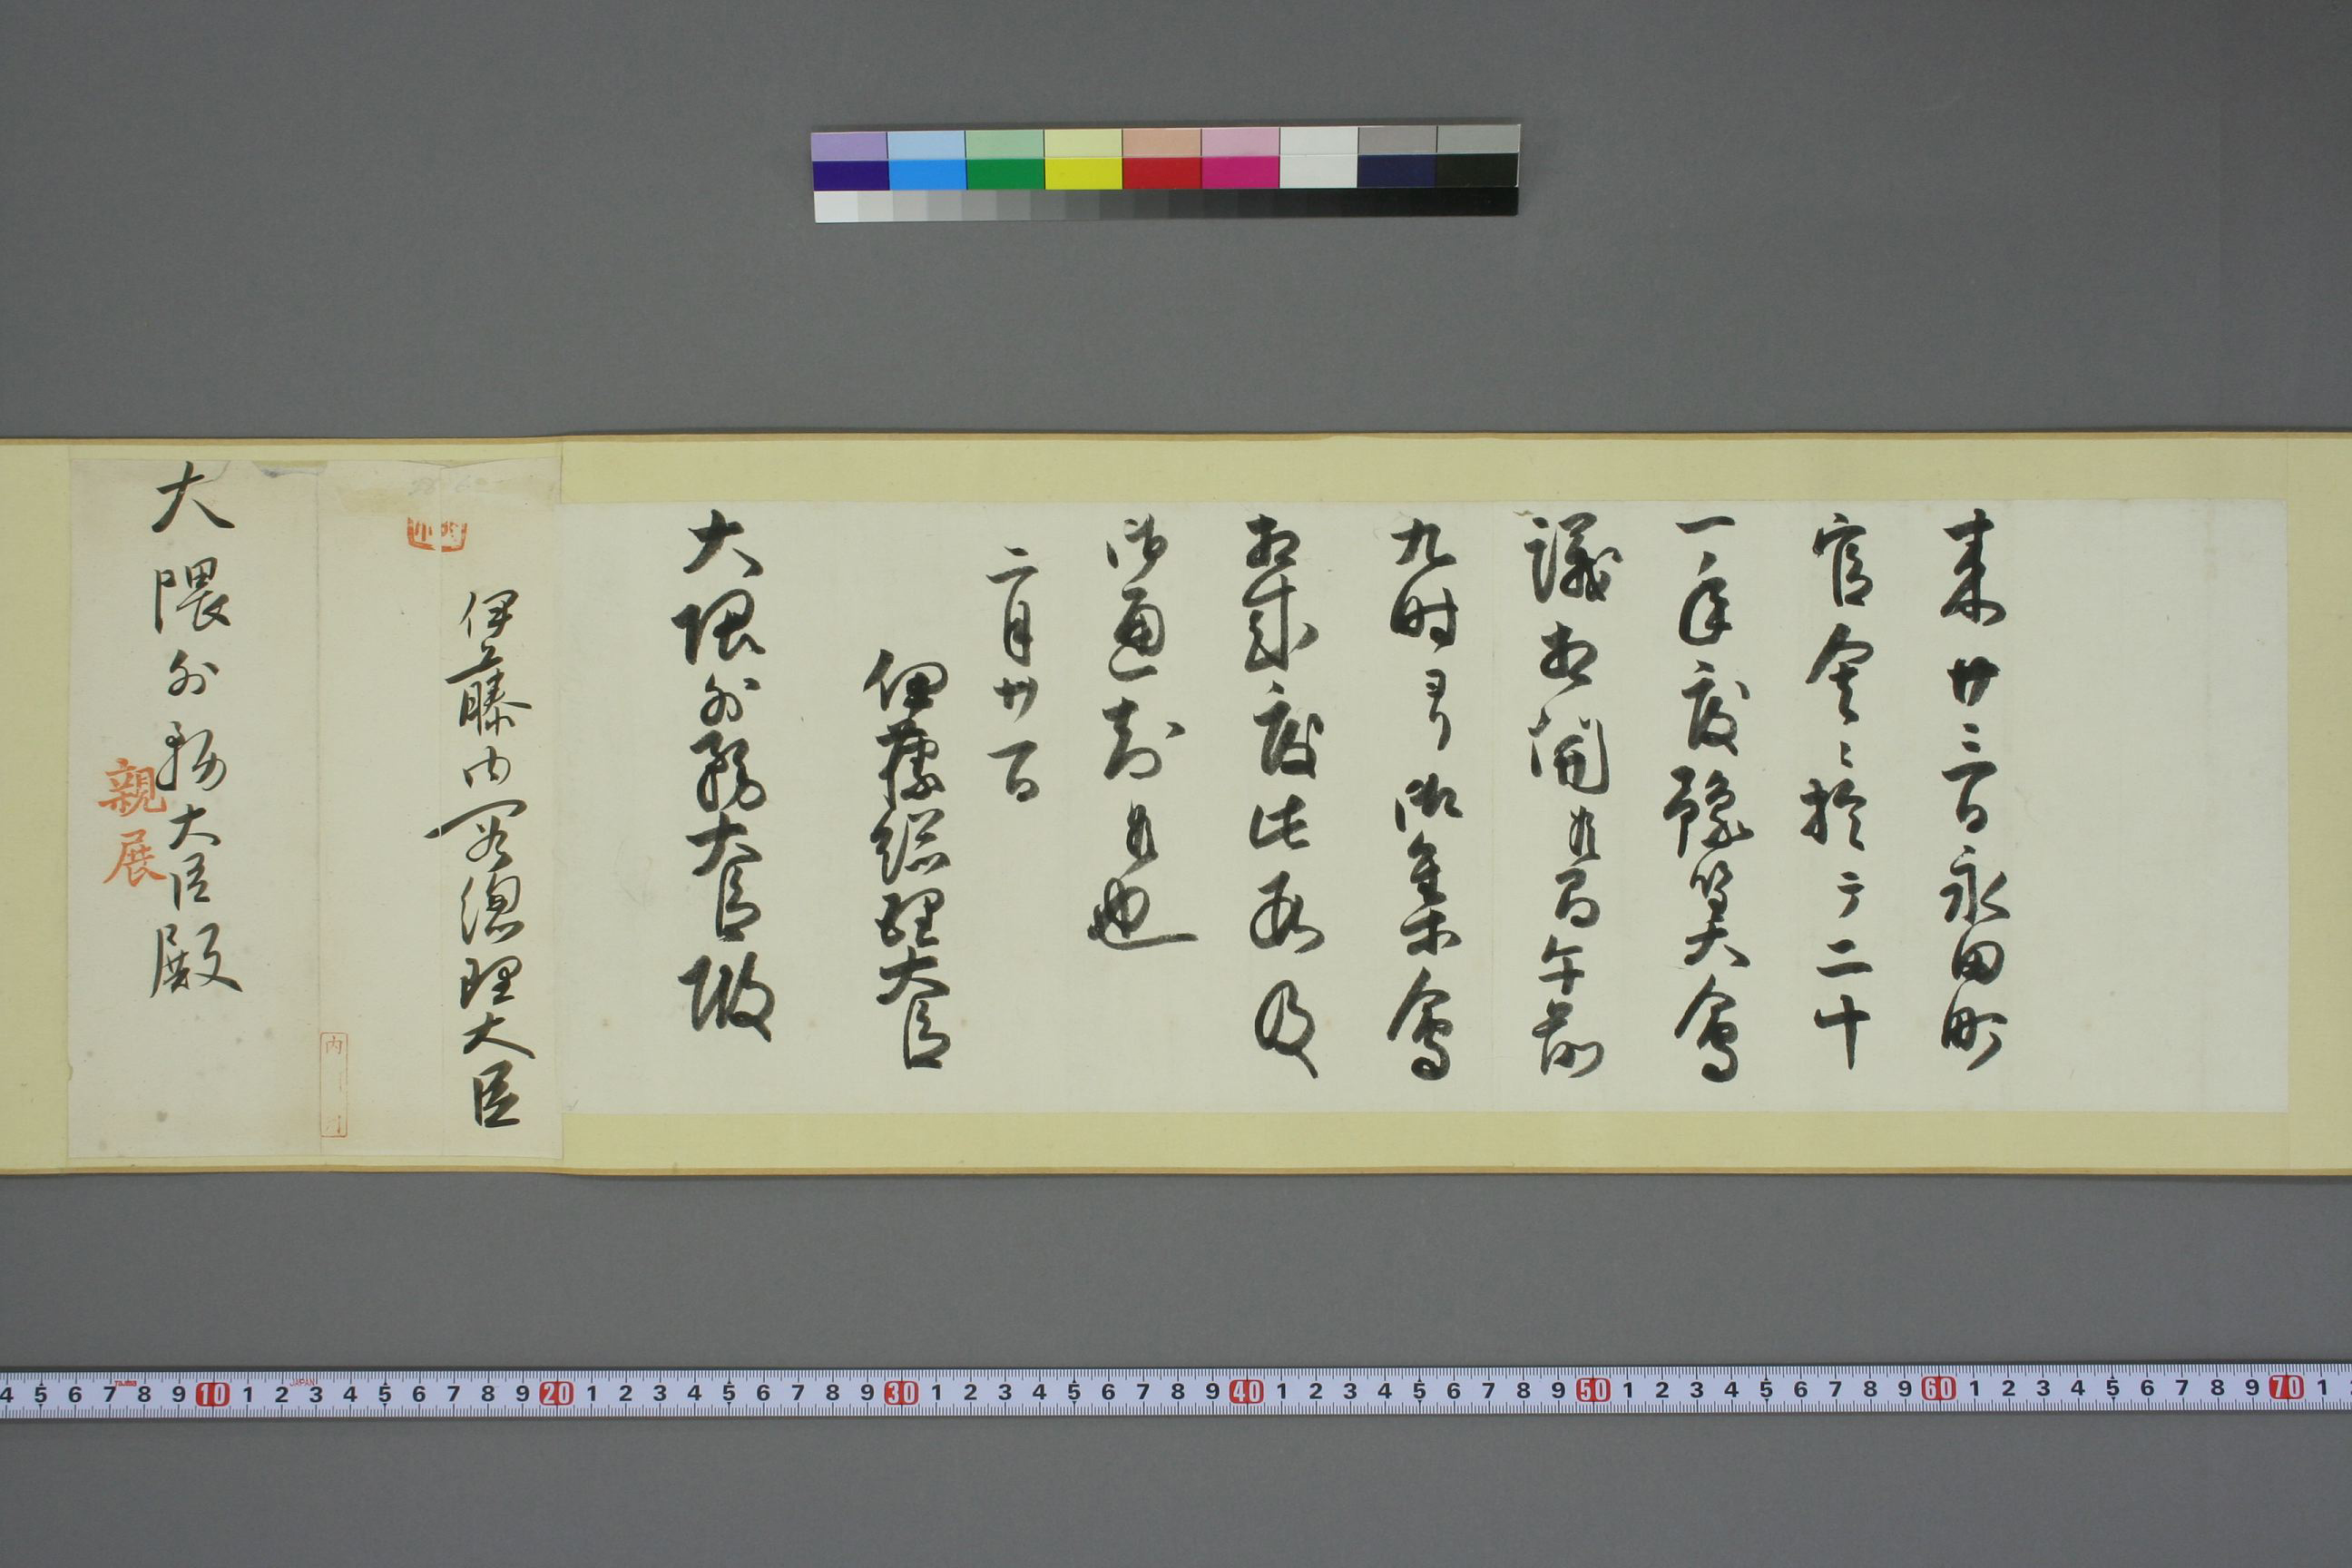 来廿三日永田町
官舎ニ於テ二十
一年度豫算大會
議相開候間午前
九時ヨリ御集會
相成度此段及
御通知候也
二月廿日
伊藤総理大臣
大隈外務大臣殿
伊藤内閣總理大臣
大隈外務大臣殿
親展